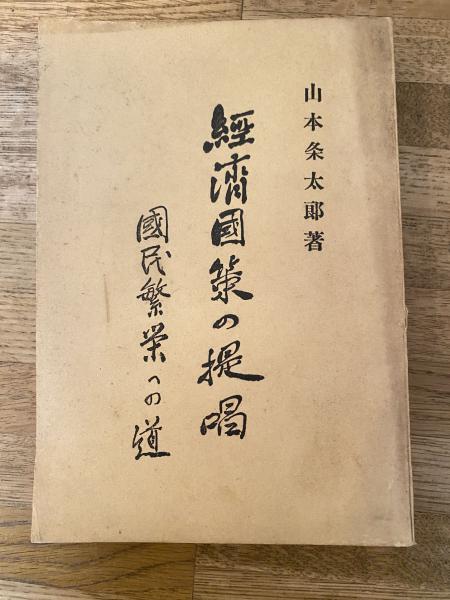 山本条太郎著
經濟國策の提唱
國民繁栄への道